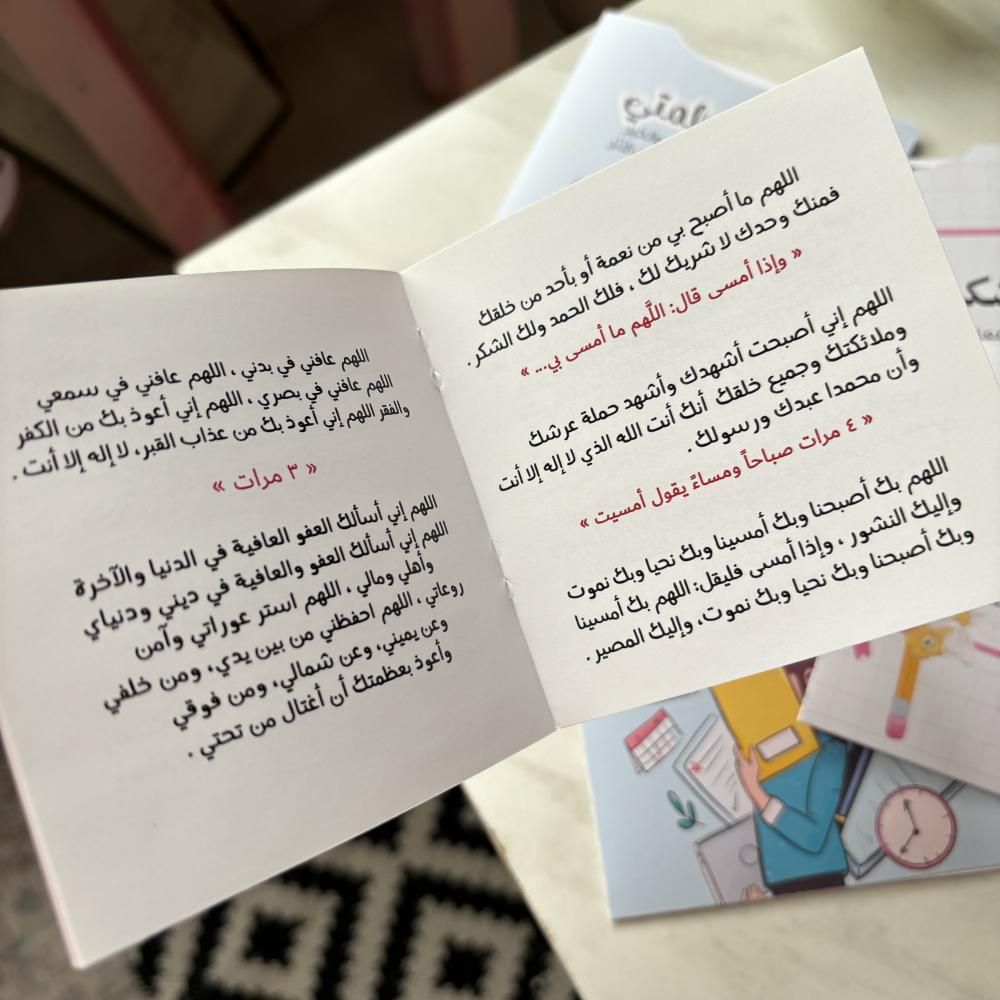 اللهم ما أصبح بي من نعمة أو بأحد من خلقك
فمنك وحدك لا شريك لك ، فلك الحمد ولك الشكر.
« وإذا أمسى قال: اللَّهم ما أمسى بي... »
اللهم إني أصبحت أشهدك وأشهد حملة عرشك
وملائكتك وجميع خلقك أنك أنت الله الذي لا إله إلا أنت
وأن محمدا عبدك ورسولك.
« ٤ مرات صباحاً ومساءً يقول أمسيت »
اللهم بك أصبحنا وبك أمسينا وبك نحيا وبك نموت
وإليك النشور ، وإذا أمسى فليقل: اللهم بك أمسينا
وبك أصبحنا وبك نحيا وبك نموت، وإليك المصير.
اللهم عافني في بدني ، اللهم عافني في سمعي
اللهم عافني في بصري ، اللهم إني أعوذ بك من الكفر
والفقر اللهم إني أعوذ بك من عذاب القبر، لا إله إلا أنت.
« ٣ مرات »
اللهم إني أسألك العفو العافية في الدنيا والآخرة
اللهم إني أسألك العفو والعافية في ديني ودنياي
وأهلي ومالي ، اللهم استر عوراتي وآمن
روعاتي ، اللهم احفظني من بين يدي، ومن خلفي
وعن يميني، وعن شمالي، ومن فوقي
وأعوذ بعظمتك أن أغتال من تحتي .